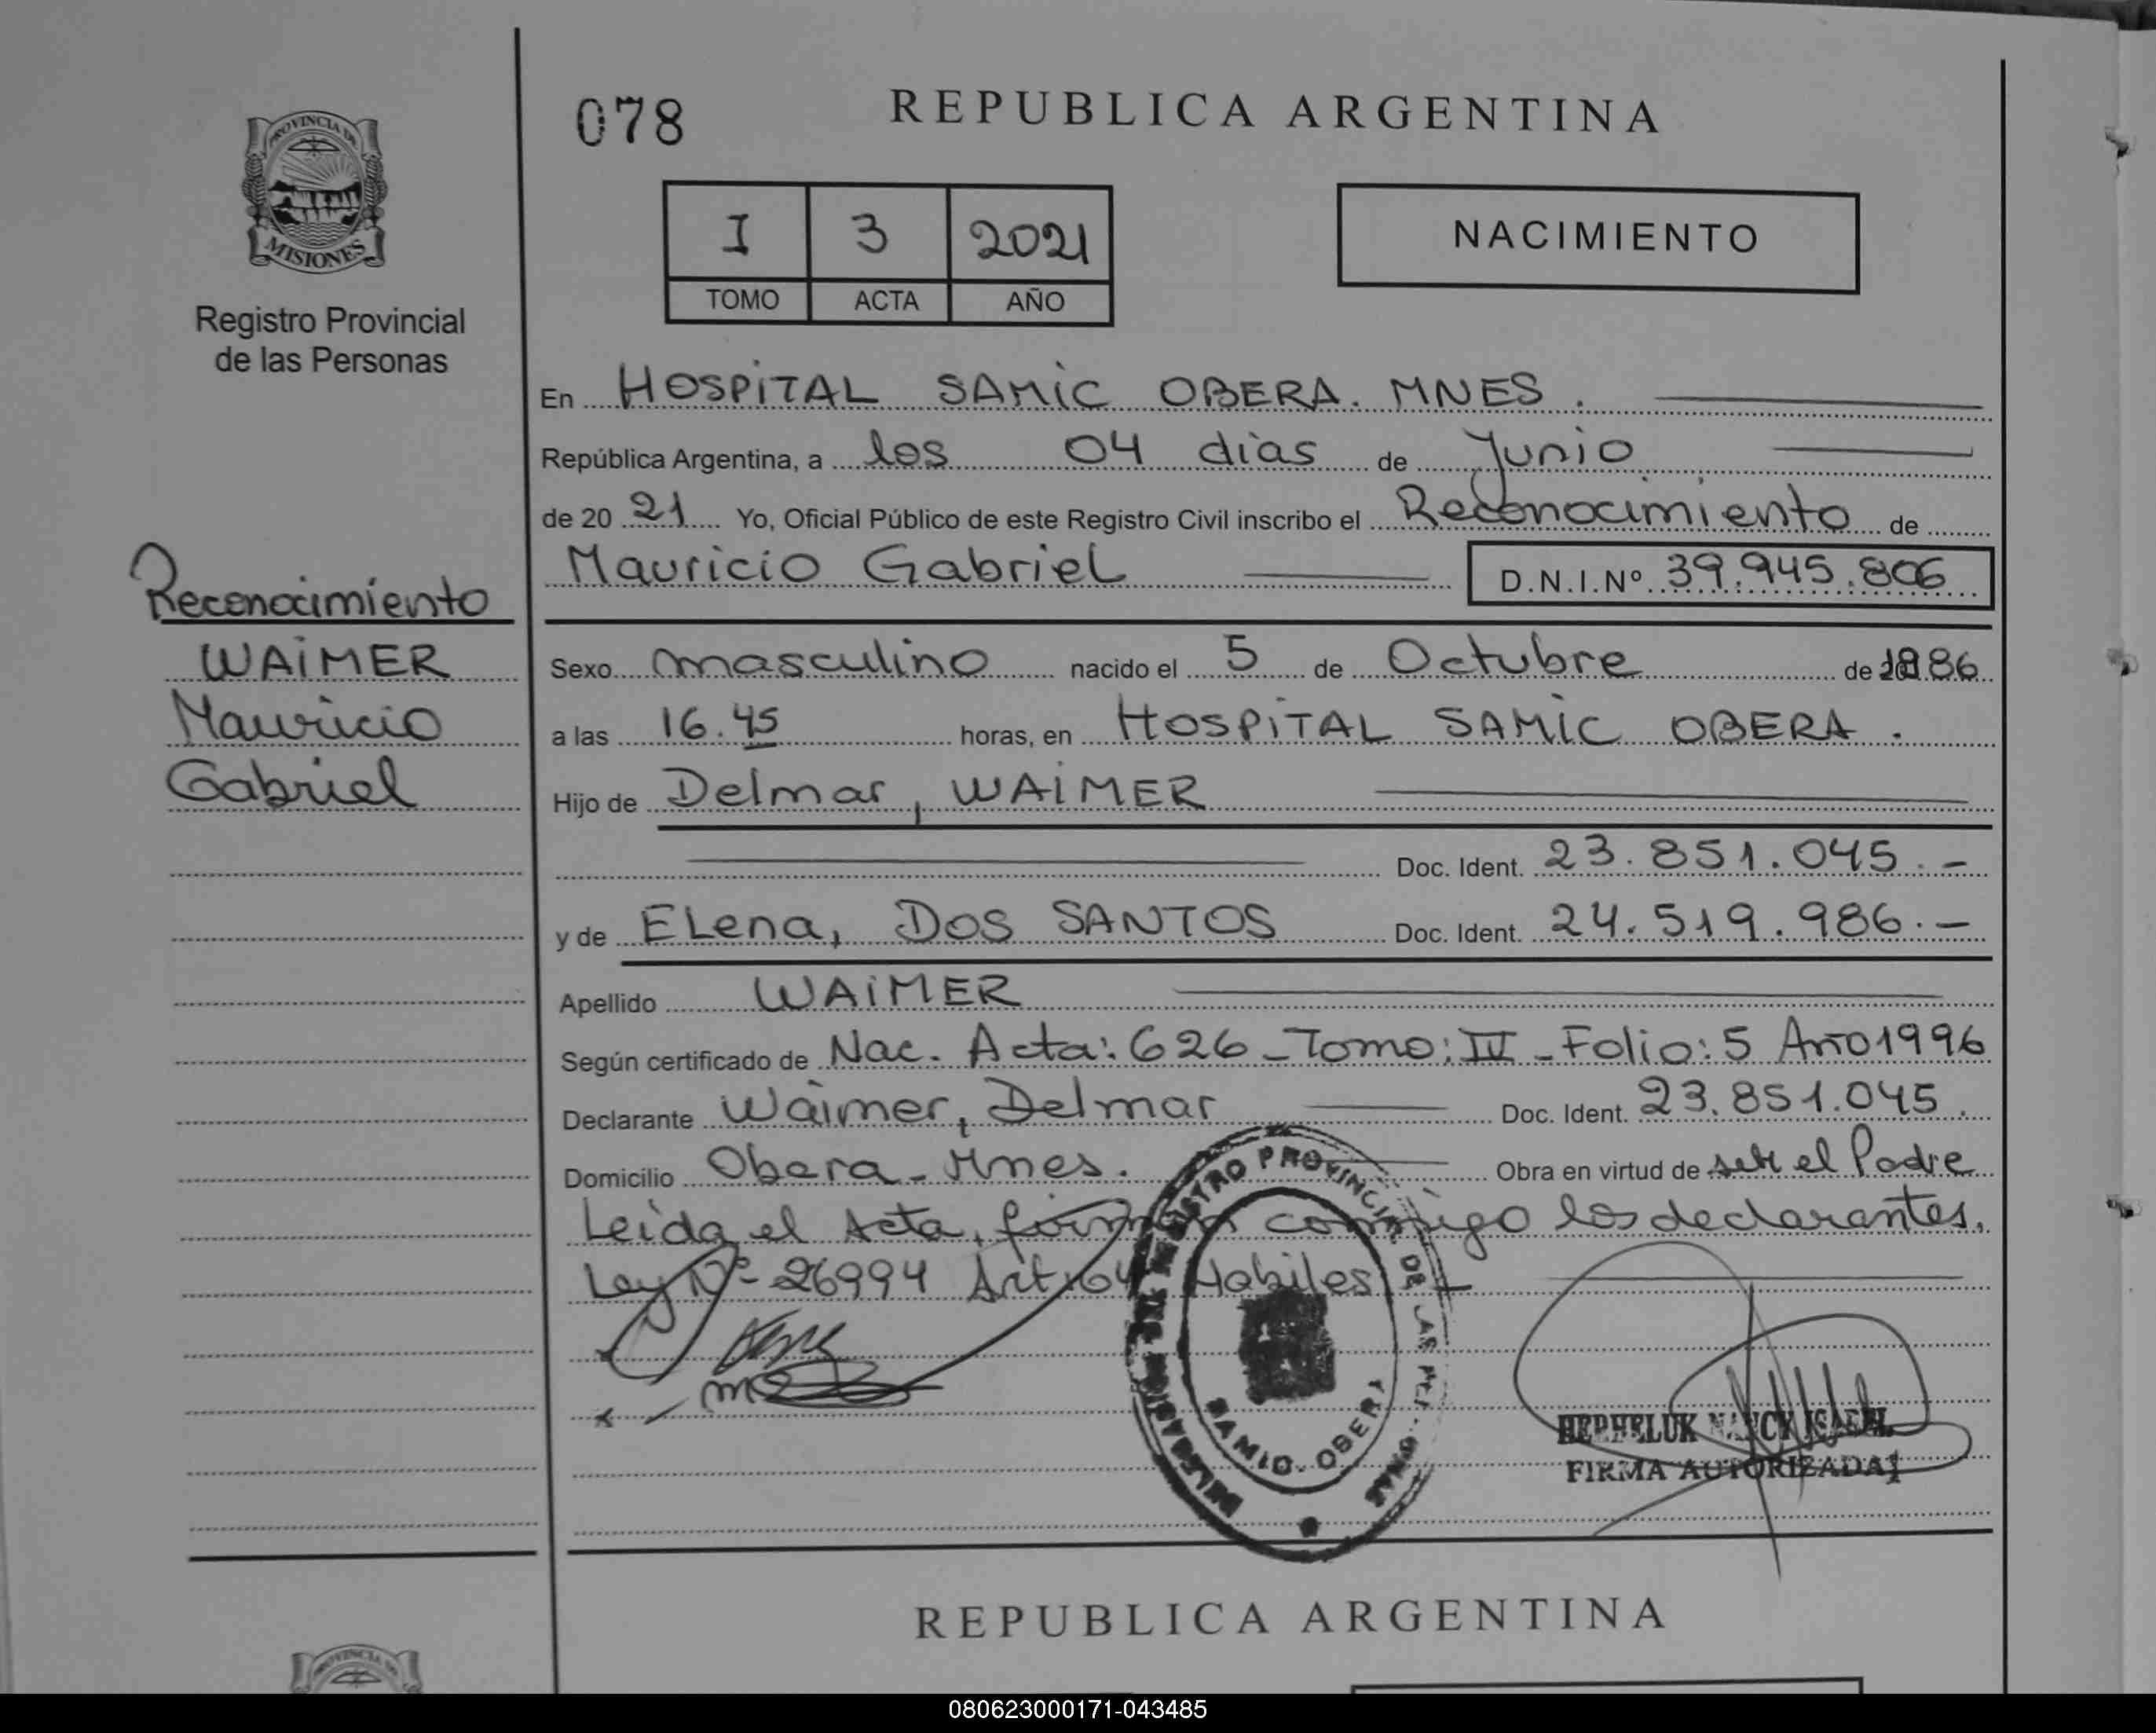 078
REPUBLICA ARGENTINA
PROVINCIA DE
MISIONES
Registro Provincial
de las Personas
I 3 2021
TOMO ACTA AÑO
NACIMIENTO
En HOSPITAL SAMIC OBERA. MNES.
República Argentina, a los 04 dias de Junio
de 20 21 Yo, Oficial Público de este Registro Civil inscribo el Reconocimiento de
Mauricio Gabriel D.N.I.Nº 39.945.806
Reconocimiento
WAIMER
Mauricio
Gabriel
Sexo masculino nacido el 5 de Octubre de 1986
a las 16.45 horas, en HOSPITAL SAMIC OBERA.
Hijo de Delmar, WAIMER
Doc. Ident. 23.851.045.-
y de ELena, DOS SANTOS Doc. Ident. 24.519.986.-
Apellido WAIMER
Según certificado de Nac. Acta: 626 - Tomo: IV - Folio: 5 Año 1996
Declarante Waimer, Delmar Doc. Ident. 23.851.045.
Domicilio Obera - Mnes. Obra en virtud de ser el Padre
Leida el Acta, firman conmigo los declarantes.
Ley Nº 26994 Art. 64 Habiles
REGISTRO PROVINCIAL DE LAS
SAMIC - OBERA
FIRMA AUTORIZADA
REPUBLICA ARGENTINA
PROVINCIA DE
080623000171-043485